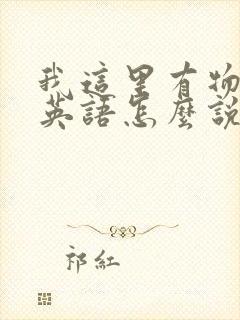 我這里有物
英語怎麼說
祁紅